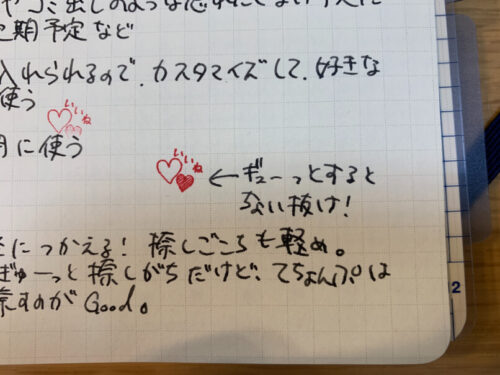 やゴミ出しのような忘れたくない予定
定期予定など
入れられるので、カスタマイズして、好きな
使う
いいね
用に使う
いいね
←ギューっとすると
ない抜け!
につかえる! 捺しごこちも軽め。
ぎゅーっと捺しがちだけど、てちょんぷは
捺すのがGood。
2